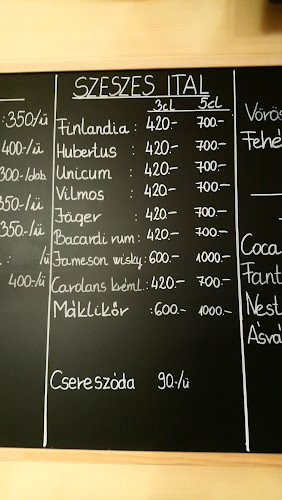 :350/ü
400.-/ü
300.-/dob.
350.-/ü
350.-/ü
: /ü
400.-/ü
SZESZES ITAL
3cl 5cl
Finlandia : 420.- 700.-
Hubertus : 420.- 700.-
Unicum : 420.- 700.-
Vilmos : 420.- 700.-
Jäger : 420.- 700.-
Bacardi rum: 420.- 700.-
Jameson wisky: 600.- 1000.-
Carolans kréml.: 420.- 700.-
Máklikőr : 600.- 1000.-
Csereszóda 90.-/ü
Vörös
Fehé
Coca
Fant
Nest
Ásvá